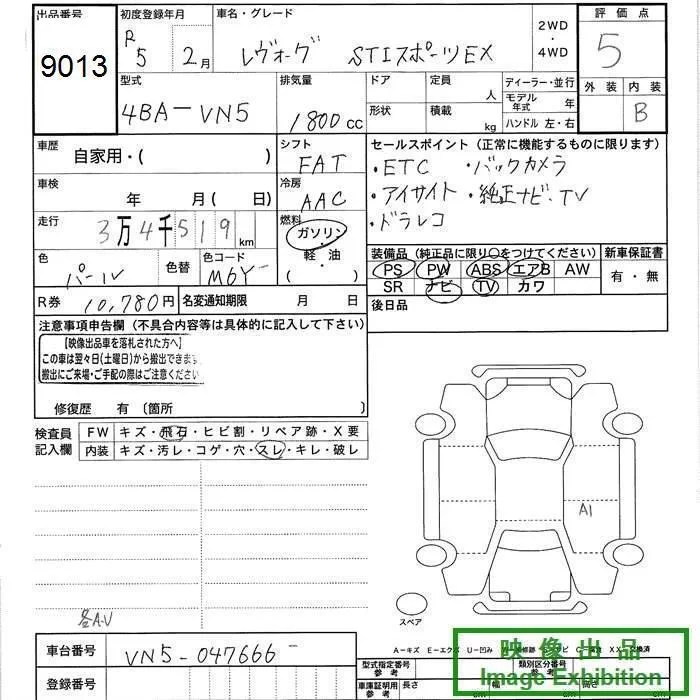 出品番号
9013
初度登録年月
R 5 2月
車名・グレード
レヴォーグ STIスポーツEX
2WD
・
4WD
評価点
5
外装 内装
B
型式
4BA-VN5
排気量
1800cc
ドア
形状
定員 人
積載 kg
ディーラー・並行
モデル年式 年
ハンドル 左・右
車歴
自家用・( )
シフト
FAT
セールスポイント (正常に機能するものに限ります)
・ETC ・バックカメラ
・アイサイト ・純正ナビ・TV
・ドラレコ
車検
年 月(日)
冷房
AAC
走行
3万4千519km
燃料
ガソリン
・
軽油
・
色
パール
色替
色コード
M6Y
装備品 (純正品に限り○をつけてください)
PS PW ABS エアB AW
SR ナビ TV カワ
新車保証書
有・無
R券 10,780円
名変通知期限 月 日
後日品
注意事項申告欄 (不具合内容等は具体的に記入して下さい)
【映像出品車を落札された方へ】
この車は翌々日(土曜日)から搬出できます
搬出にご来場・ご手配の際はご注意ください
修復歴 有 〔箇所 〕
検査員
記入欄
FW キズ・飛石・ヒビ割・リペア跡・X要
内装 キズ・汚レ・コゲ・穴・スレ・キレ・破レ
A1
スペア
各A.U
A−キズ E−エクボ U−凹み
XX−交換済
車台番号
VN5-047666
登録番号
型式指定番号
参考
類別区分番号
参考
車庫証明用
参考
長さ
cm
幅
cm
高さ
cm
映像出品
Image Exhibition